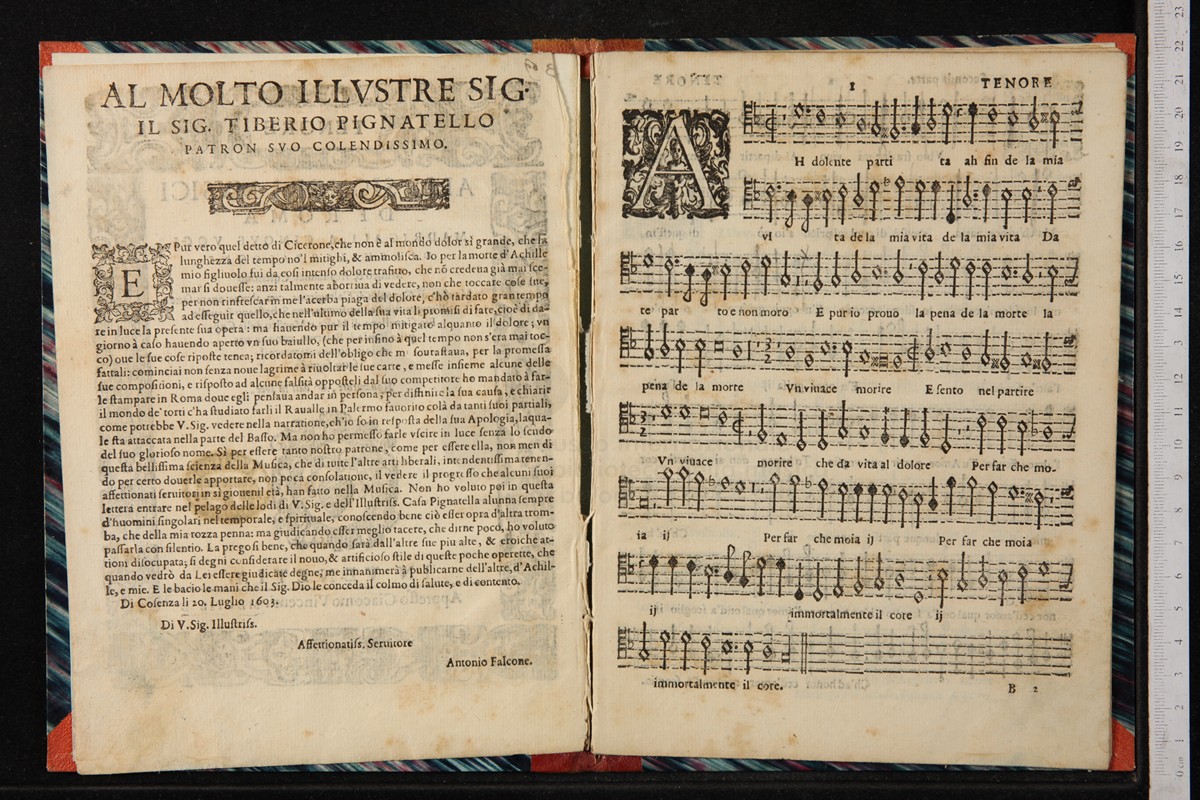 AL MOLTO ILLVSTRE SIG.
IL SIG. TIBERIO PIGNATELLO
PATRON SVO COLENDISSIMO.
E Pur vero quel detto di Cicerone, che non è al mondo dolor sì grande, che la
lunghezza del tempo no'l mitighi, & ammolisca. Io per la morte d'Achille
mio figliuolo fui da cosi intenso dolore trafitto, che nõ credeua già mai sce-
mar si douesse: anzi talmente aborriua di vedere, non che toccare cose sue,
per non rinfrescar in me l'acerba piaga del dolore, c'hò tardato gran tempo
ad esseguir quello, che nell'vltimo della sua vita li promisi di fare, cioè di da-
re in luce la presente sua opera: ma hauendo pur il tempo mitigato alquanto il dolore, vn
giorno à caso hauendo aperto vn suo baiullo, (che per infino à quel tempo non s'era mai toc-
co) oue le sue cose riposte tenea; ricordatomi dell'obligo che mi sourastaua, per la promessa
fattali: cominciai non senza noue lagrime à riuoltar le sue carte, e messe insieme alcune delle
sue compositioni, e risposto ad alcune falsità oppostéli dal suo competitore ho mandato à far-
le stampare in Roma doue egli pensaua andar in persona, per difinire la sua causa, e chiarir
il mondo de' torti c'ha studiato farli il Raualle in Palermo fauorito colà da tanti suoi partiali,
come potrebbe V. Sig. vedere nella narratione, ch'io fo in risposta della sua Apologia, laqua-
le sta attaccata nella parte del Basso. Ma non ho permesso farle vscire in luce senza lo scudo
del suo glorioso nome. Sì per essere tanto nostro patrone, come per essere ella, non men di
questa bellissima scienza della Musica, che di tutte l'altre arti liberali, intendentissima tenen-
do per certo douerle apportare, non poca consolatione, il vedere il progresso che alcuni suoi
affettionati seruitori in sì giouenil età, han fatto nella Musica. Non ho voluto poi in questa
lettera entrare nel pelago delle lodi di V. Sig. e dell'Illustriss. Casa Pignatella alunna sempre
d'huomini singolari nel temporale, e spirituale, conoscendo bene ciò esser opra d'altra trom-
ba, che della mia rozza penna: ma giudicando esser meglio tacere, che dirne poco, ho voluto
passarla con silentio. La prego sì bene, che quando sarà dall'altre sue piu alte, & eroiche at-
tioni disocupata; si degni considerare il nouo, & artificioso stile di queste poche operette, che
quando vedrò da Lei essere giudicate degne, me innanimerà à publicarne dell'altre, d'Achil-
le, e mie. E le bacio le mani che il Sig. Dio le conceda il colmo di salute, e di contento.
Di Cosenza li 20. Luglio 1603.
Di V. Sig. Illustriss.
Affettionatiss. Seruitore
Antonio Falcone.
1 TENORE
AH dolente parti ta ah fin de la mia
vi ta de la mia vita de la mia vita Da
te par to e non moro E pur io prouo la pena de la morte la
pena de la morte Vn viuace morire E sento nel partire
Vn viuace morire che da vita al dolore Per far che mo-
ia ij Per far che moia ij Per far che moia
ij immortalmente il core ij
immortalmente il core.
B 2